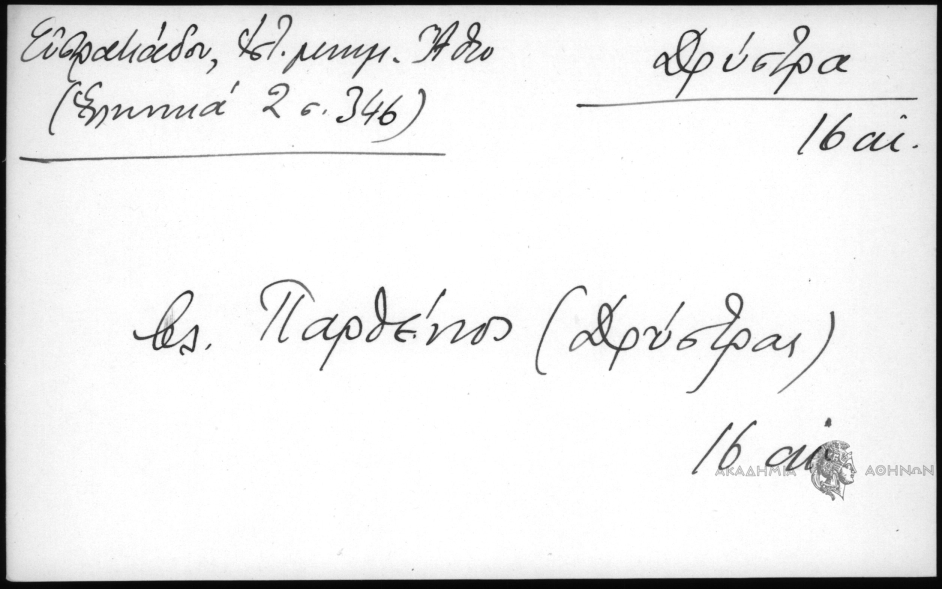 Εὐστρατιάδου, Ἱστ. μνημ. Ἄθω
(Ἑλληνικά 2 σ. 346)
Δρύστρα
16 αἰ.
βλ. Παρθένιος (Δρύστρας)
16 αἰ.
ΑΚΑΔΗΜΙΑ ΑΘΗΝΩΝ